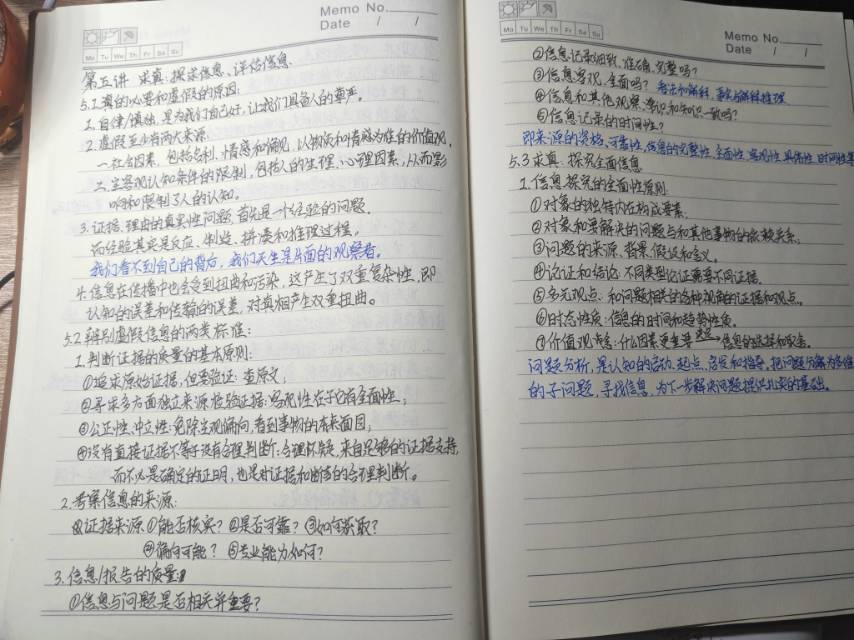 Memo No.
Date / /
Mo Tu We Th Fr Sa Su
第五讲 求真:探求信息、评估信息
5.1 真的必要和虚假的原因:
1. 自律/慎独,是为我们自己好,让我们具备人的尊严。
2. 虚假至少有两大来源
一.社会因素,包括名利、情感和偏见,以物欲和情感为准的价值观,
二.主客观认知条件的限制,包括人的生理、心理因素,从而影
响和限制了人的认知。
3. 证据、理由的真实性问题,首先是一个经验的问题.
而经验其实是反应、制造、拼凑和推理过程。
我们看不到自己的背后,我们天生是片面的观察者。
4. 信息在传播中也会受到扭曲和污染,这产生了双重复杂性,即
认知的误差和传输的误差,对真相产生双重扭曲。
5.2 辨别虚假信息的两类标准:
1. 判断证据的质量的基本原则:
①追求原始证据,但要验证:查原文,
②寻求多方面独立来源检验证据:客观性在于它有全面性,
③公正性、中立性:免除主观偏向,看到事物的本来面目,
④没有直接证据不等于没有合理判断:合理怀疑,来自足够的证据支持,
而不必是确定的证明,也是对证据和断言的合理判断。
2. 考察信息的来源:
证据来源 ①能否核实?②是否可靠?③如何获取?
④偏向可能?⑤专业能力如何?
3. 信息/报告的质量:
①信息与问题是否相关并重要?
Mo Tu We Th Fr Sa Su
Memo No.
Date / /
②信息记录细致、准确、完整吗?
③信息客观、全面吗?看法和解释,事实与解释推理
④信息和其他观察、常识和知识一致吗?
⑤信息记录的时间性?
即来源的资格、可靠性,信息的完整性、全面性、客观性、具体性、时间性等
5.3 求真:探究全面信息
1. 信息探究的全面性原则:
①对象的独特内在构成要素.
②对象和要解决的问题与和其他事物的依赖关系.
③问题的来源、背景、假设和含义。
④论证和结论:不同类型论证需要不同证据.
⑤多元观点:和问题相关的各种视角的证据和观点。
⑥时态性质:信息的时间和趋势性质。
⑦价值观:什么因素更重要 信息的选择和取舍。
问题分析,是认知的启动、起点、启发和指导,把问题分解为多维
的子问题,寻找信息,为下一步解决问题提供扎实的基础。